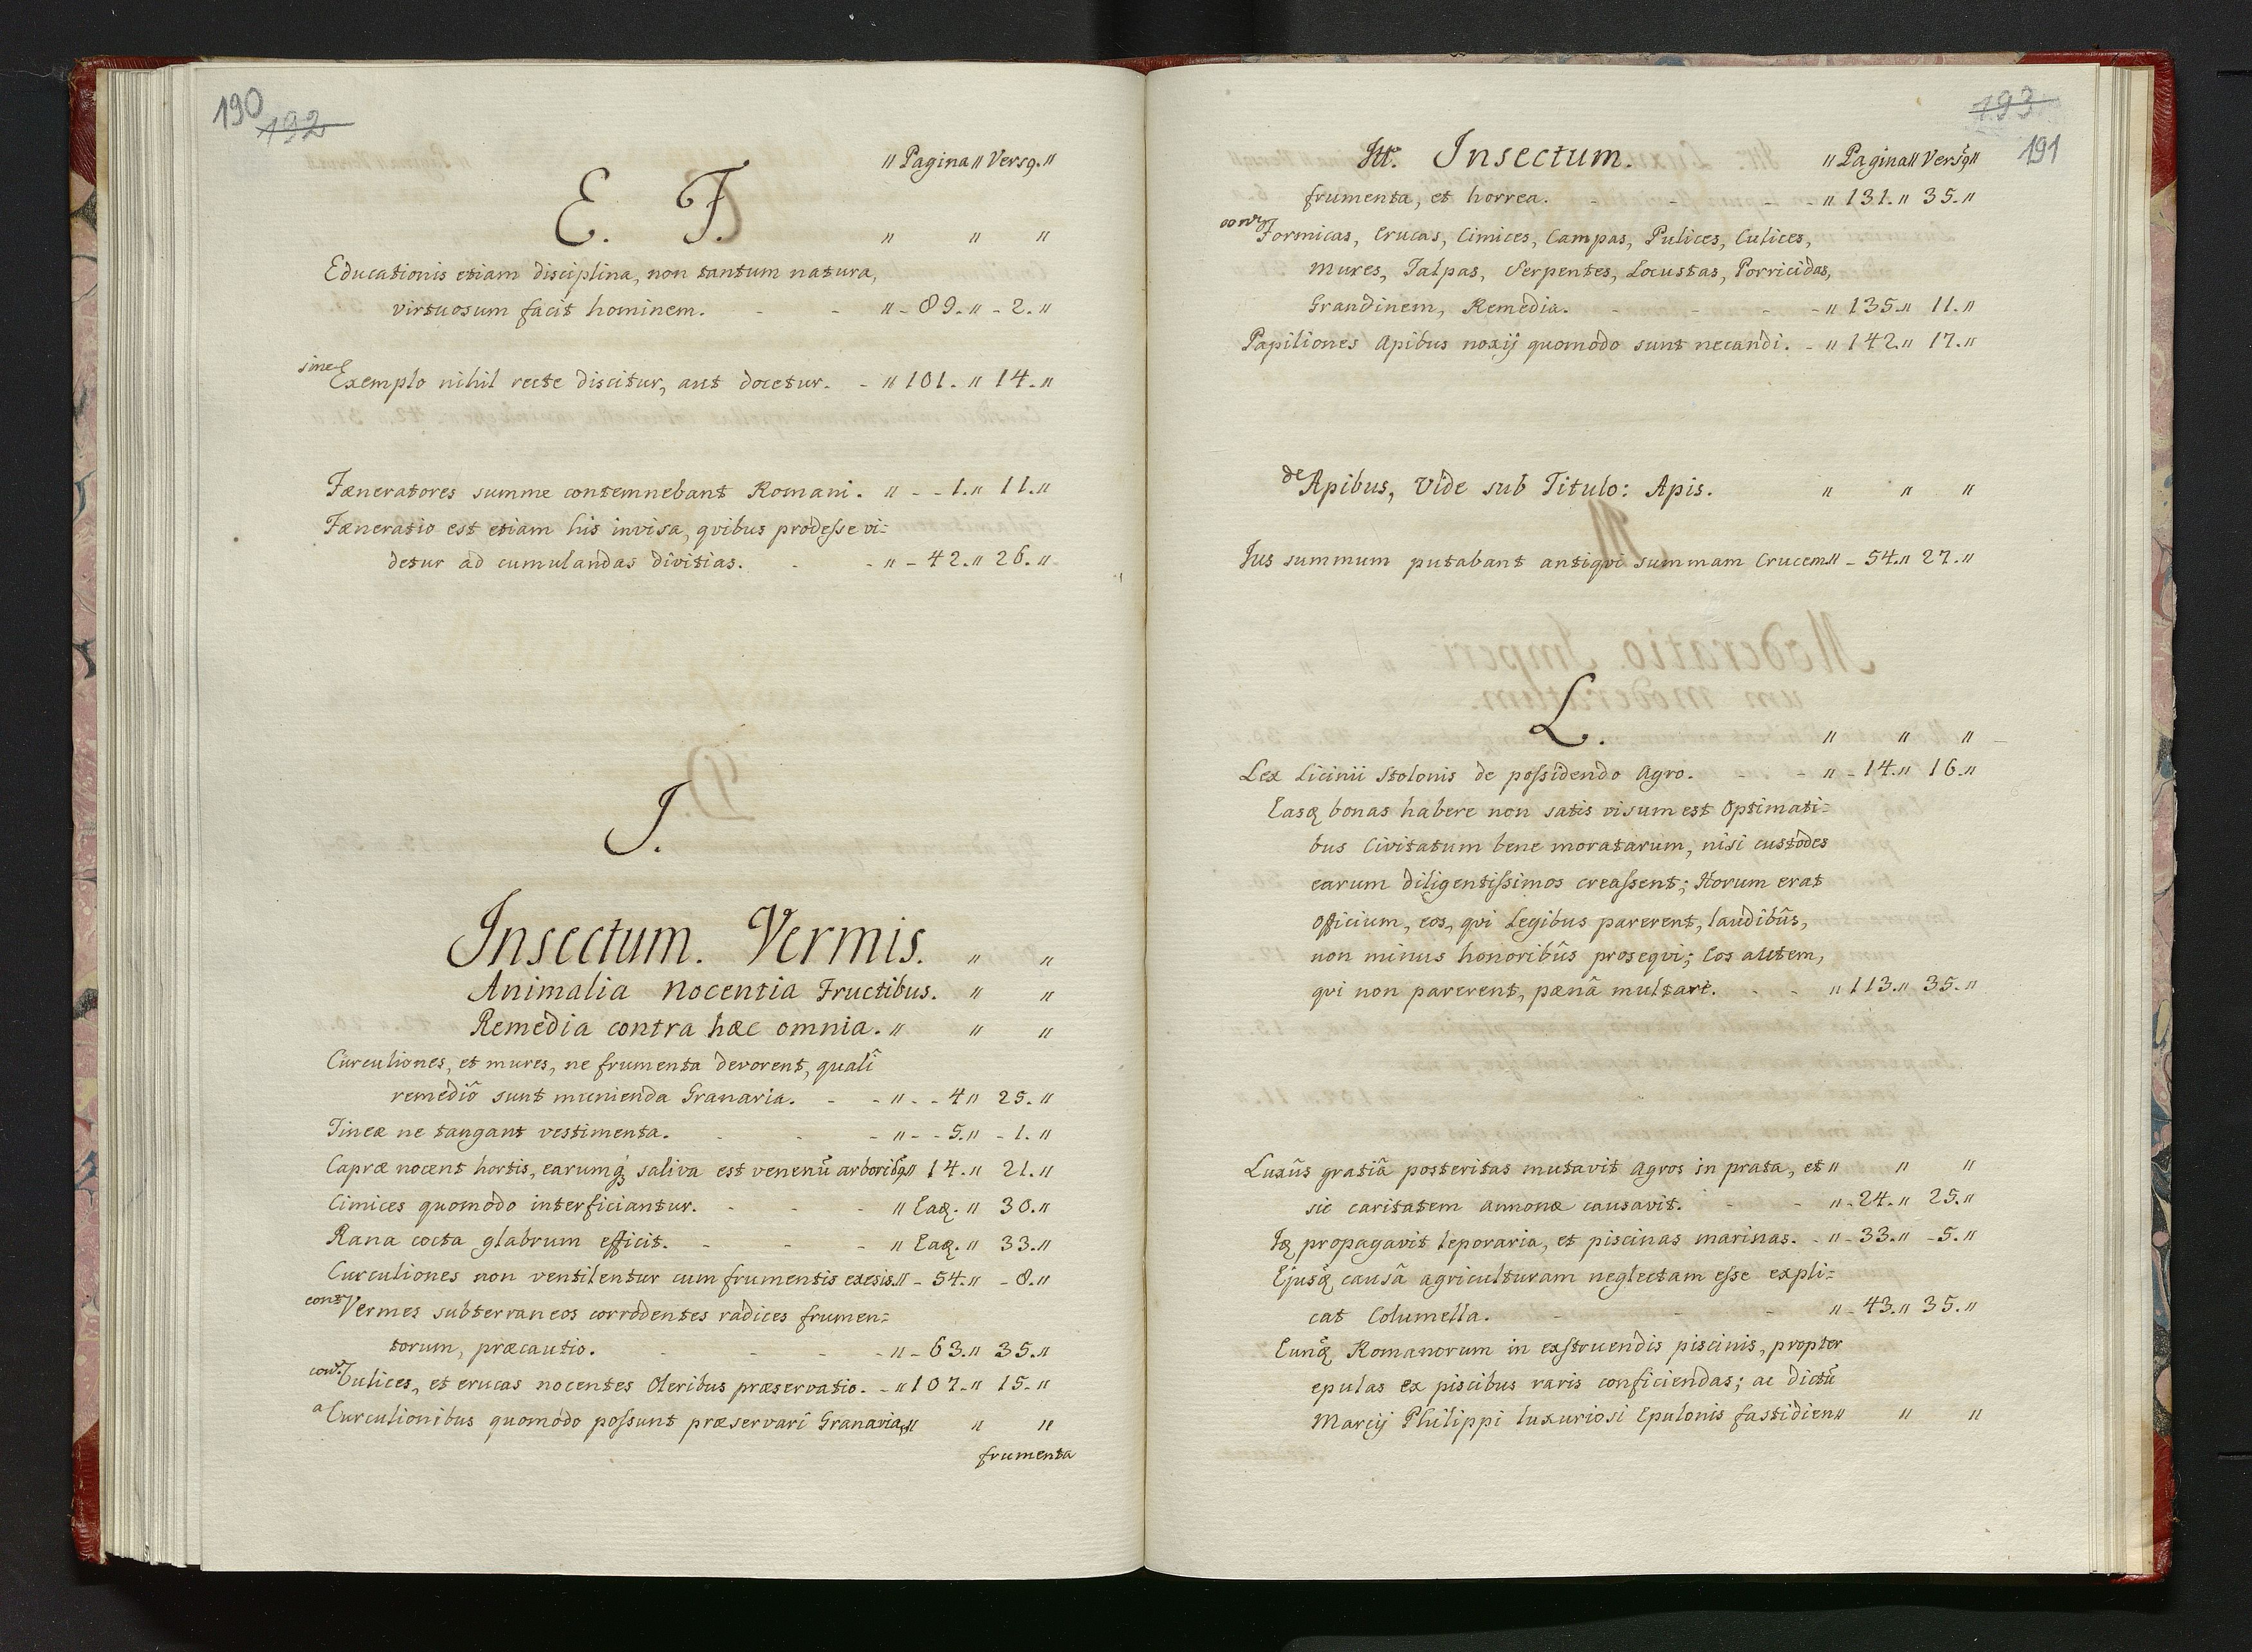 190
192
" Pagina " Versq. "
E. F. " " "
Educationis etiam disciplina, non tantum natura,
virtuosum facit hominem. - - " - 89. " - 2. "
sine Exemplo nihil recte discitur, aut docetur. - " 101. " 14. "
Fæneratores summe contemnebant Romani. " - - 1. " 11. "
Fæneratio est etiam his invisa, qvibus prodeſse vi=
detur ad cumulandas divitias. - - " - 42. " 26. "
I.
Insectum. Vermis. " "
Animalia nocentia Fructibus. " "
Remedia contra hæc omnia. " " "
Curculiones, et mures, ne frumenta devorent, qualî
remediô sunt munienda Granaria. - - " - - 4 " 25. "
Tineæ ne tangant vestimenta. - - - " - - 5. " - 1. "
Capræ nocent hortis, earumq; saliva est venenū arboribq " 14. " 21. "
Cimices quomodo interficiantur. - - - " Eaq. " 30. "
Rana cocta glabrum efficit. - - - " Eaq. " 33. "
Curculiones non ventilentur cum frumentis exesis. " - 54. " - 8. "
cont. Vermes subterraneos corrodentes radices frumen=
torum, præcautio. - - - - " - 63. " 35. "
cont. Culices, et erucas nocentes Oleribus præservatio. - " 107. " 15. "
a Curculionibus quomodo poſsunt præservari Granaria, " " "
frumenta
193
191
Itt. Insectum. " Pagina " Versq "
frumenta, et horrea. - - - - " 131. " 35. "
contr. Formicas, Erucas, Cimices, Campas, Pulices, Culices,
Mures, Talpas, Serpentes, Locustas, Porricidas,
Grandinem, Remedia. - - - - " 135. " 11. "
Papiliones Apibus noxij quomodo sunt necandi. - " 142. " 17. "
de Apibus, Vide sub Titulo: Apis. " " "
Jus summum putabant antiqvi summam Crucem. " - 54. " 27. "
L. " " "
Lex Licinii Stolonis de poſsidendo Agro. - - " - 14. " 16. "
Easq bonas habere non satis visum est Optimati=
bus Civitatum bene moratarum, nisi custodes
earum diligentiſsimos creaſsent; Horum erat
Officium, eos, qvi Legibus parerent, laudibûs,
non minus honoribûs proseqvi; Eos autem,
qvi non parerent, pænâ multare. - - " 113. " 35. "
Luxûs gratiâ posteritas mutavit Agros in prata, et " " "
sic caritatem Annonæ causavit. - - " - 24. " 25. "
Iq propagavit leporaria, et piscinas marinas. - " - 33. " - 5. "
Ejusq causâ agriculturam neglectam eſse expli=
cat Columella. - - - " - 43. " 35. "
Eunq Romanorum in exſtruendis piscinis, propter
epulas ex piscibus raris conficiendas; ac dictū
Marcij Philippi luxuriosi Epulonis fastidien " " "